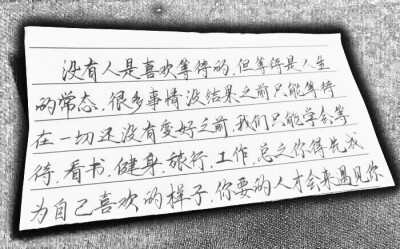 没有人是喜欢等待的，但等待是人生
的常态，很多事情没结果之前只能等待
在一切还没有变好之前，我们只能学会等
待，看书，健身，旅行，工作，总之你得先成
为自己喜欢的样子，你要的人才会来遇见你